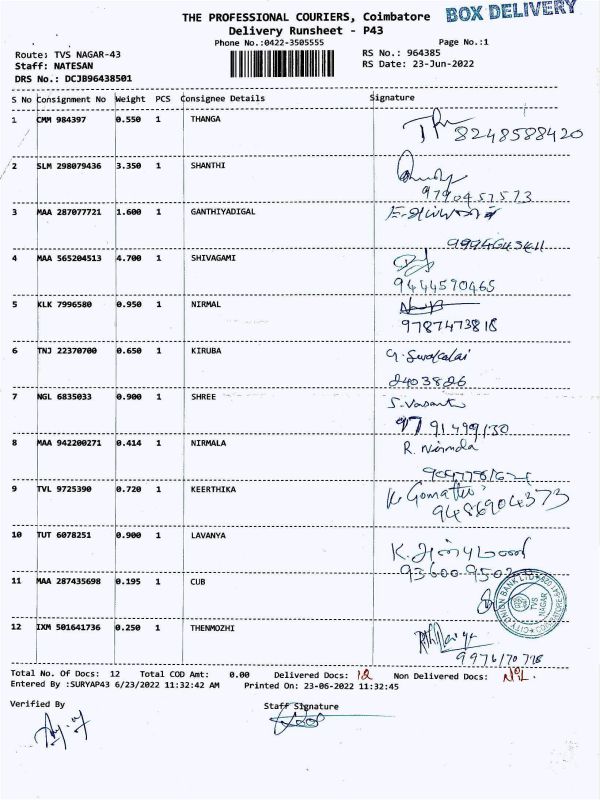 THE PROFESSIONAL COURIERS, Coimbatore
BOX DELIVERY
Delivery Runsheet - P43
Phone No.:0422-3505555
Page No.:1
Route: TVS NAGAR-43
RS No.: 964385
Staff: NATESAN
RS Date: 23-Jun-2022
DRS No.: DCJB96438501
S No Consignment No Weight PCS Consignee Details Signature
1 CMM 984397 0.550 1 THANGA
8248588420
2 SLM 298079436 3.350 1 SHANTHI
9790457573
3 MAA 287077721 1.600 1 GANTHIYADIGAL
4 MAA 565204513 4.700 1 SHIVAGAMI
9444570465
5 KLK 7996580 0.950 1 NIRMAL
9787473818
6 TNJ 22370700 0.650 1 KIRUBA
2403826
7 NGL 6835033 0.900 1 SHREE
S. Vasant
9791499130
8 MAA 942200271 0.414 1 NIRMALA
R. Nirmala
9 TVL 9725390 0.720 1 KEERTHIKA
K. Gomathi
9486904373
10 TUT 6078251 0.900 1 LAVANYA
11 MAA 287435698 0.195 1 CUB
CITY UNION BANK LTD
TVS NAGAR
COIMBATORE
12 IXM 501641736 0.250 1 THENMOZHI
Total No. Of Docs: 12 Total COD Amt: 0.00 Delivered Docs: 12 Non Delivered Docs: NIL.
Entered By :SURYAP43 6/23/2022 11:32:42 AM Printed On: 23-06-2022 11:32:45
Verified By Staff Signature